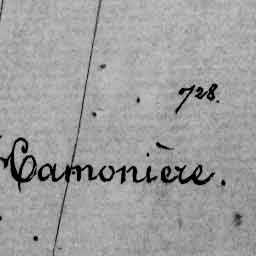 728.
Hamonière.